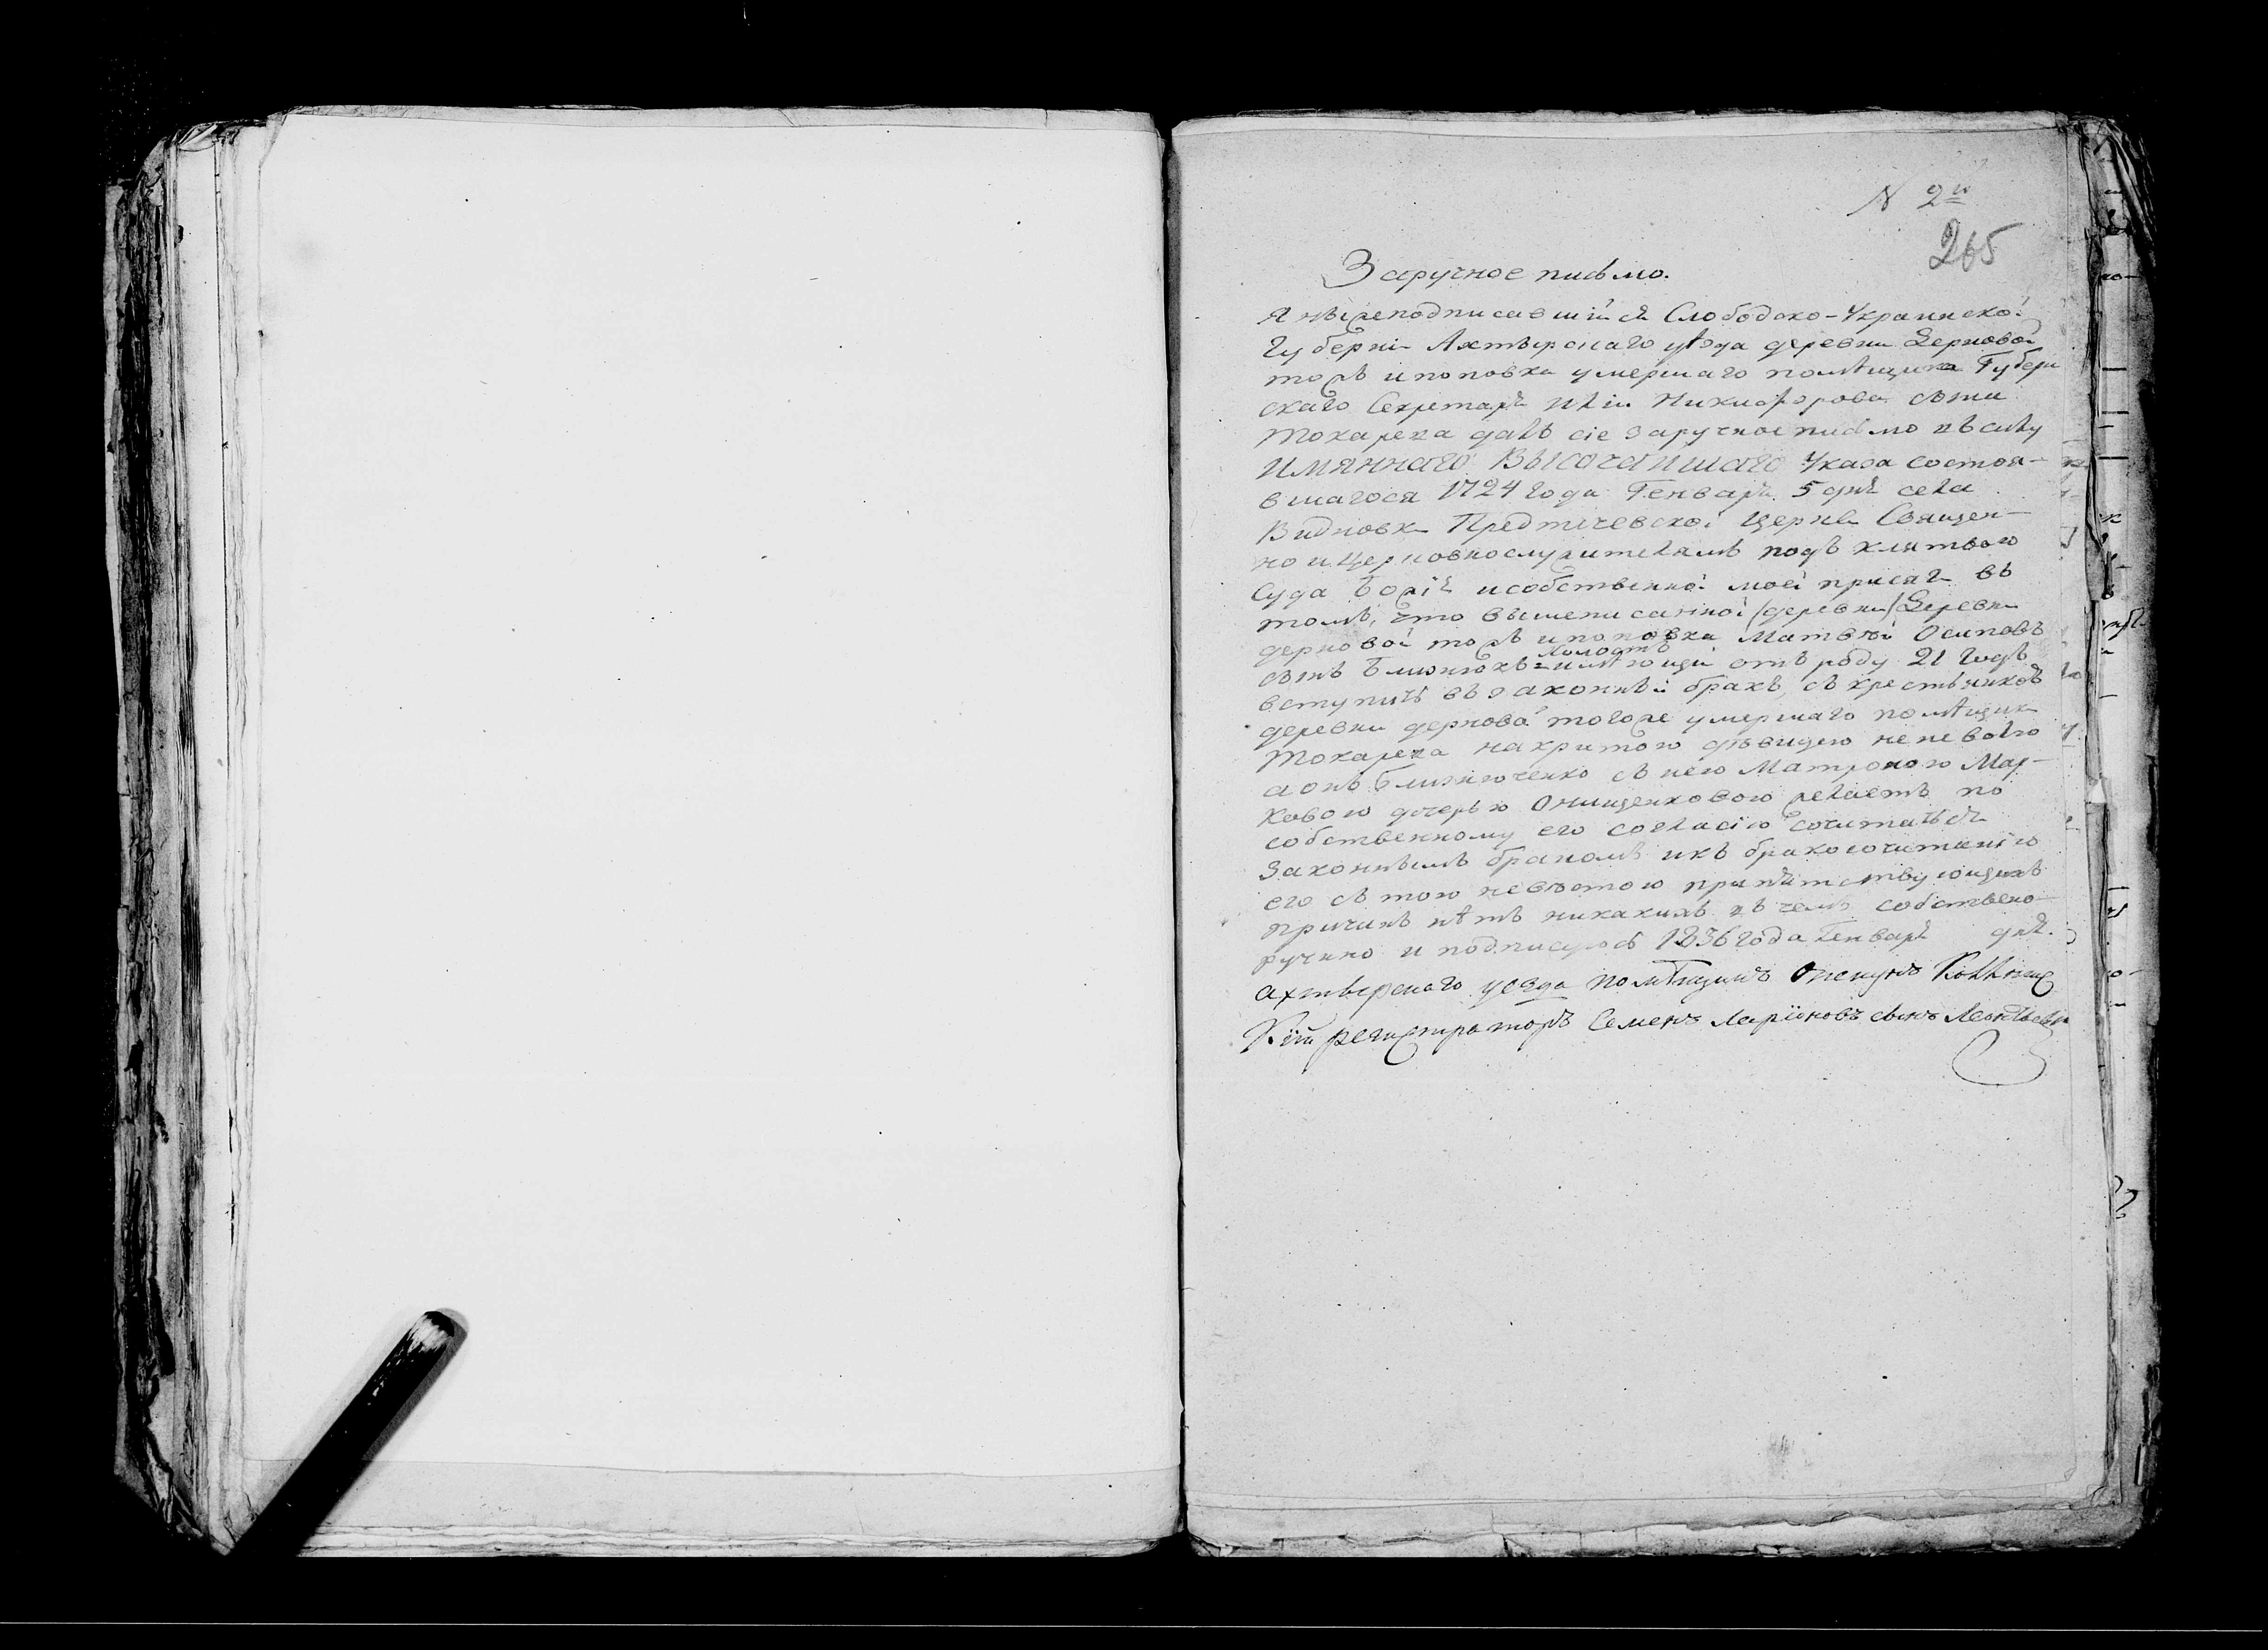 N 2й
265
Заручное письмо.
Я нижеподписавшійся Слободско-Украинской
Губерніи Ахтырскаго уѣзда деревни Дерновой
тожъ и поповка умершаго помѣщика Губерн
скаго Секретаря Иліи Никифорова сына
Токарева далъ сіе заручное письмо въ силу
ИМЯННАГО ВЫСОЧАЙШАГО Указа состоя-
вшагося 1724 года Генваря 5 дня села
Видновки Предтечевской Церкви Священ-
но и церковнослужителямъ подъ клятвою
Суда Божія и собственной моей присяги въ
томъ, что вышеписанной (деревни) Деревни
дерновой тожъ и поповка Матвѣй Осиповъ
Холостъ
сынъ Близнюкъ имѣющій отъ роду 21 годъ
вступить въ законный бракъ, съ крестьянкою
деревни дерновой тогоже умершаго помѣщика
Токарева накритою дѣвицею не неволю
а онъ Близнюченко съ нею Матроною Мар-
ковою дочерью Онищенковою желаетъ по
собственному его согласію сочитаться
Законнымъ бракомъ и къ бракосочитанію
его съ тою невѣстою препятствующихъ
причинъ нѣтъ никакихъ въ чемъ собствено
ручно и подписуюсь 1836 года Генваря дня.
ахтырскаго уезда помѣщикъ Опекунъ Коллежс
кій регистраторъ Семенъ Ларіоновъ сынъ Леонтьевъ